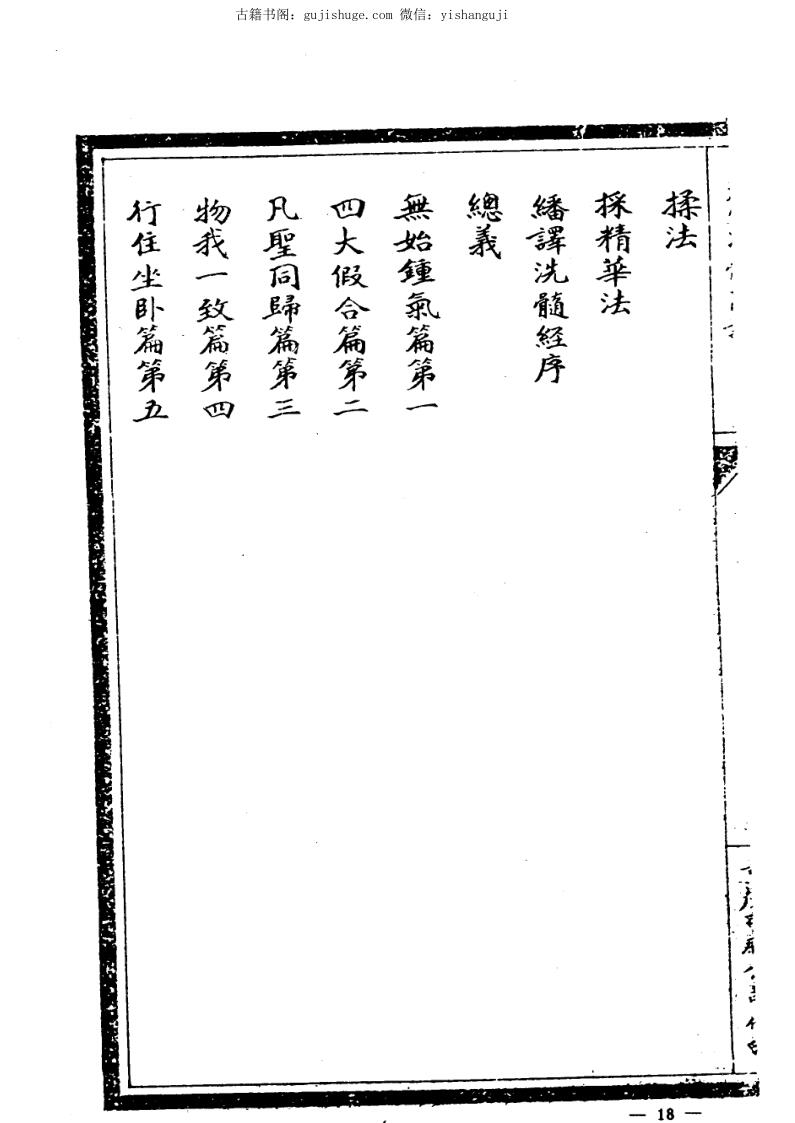 古籍书阁：gujishuge.com 微信：yishanguji
揉法
採精華法
繙譯洗髓経序
總義
無始鍾氣篇第一
四大假合篇第二
凡聖同歸篇第三
物我一致篇第四
行住坐卧篇第五
— 18 —